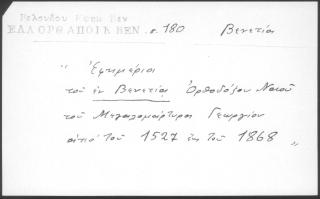 Βελουδου Χρυσ Βεν
ΕΛΛ ΟΡΘ ΑΠΟΙΚ ΒΕΝ σ. 180 Βενετία
" Ἐφημέριοι
τοῦ ἐν Βενετίᾳ Ὀρθοδόξου Ναοῦ
τοῦ Μεγαλομάρτυρος Γεωργίου
ἀπό τοῦ 1527 ἕως τοῦ 1868 "